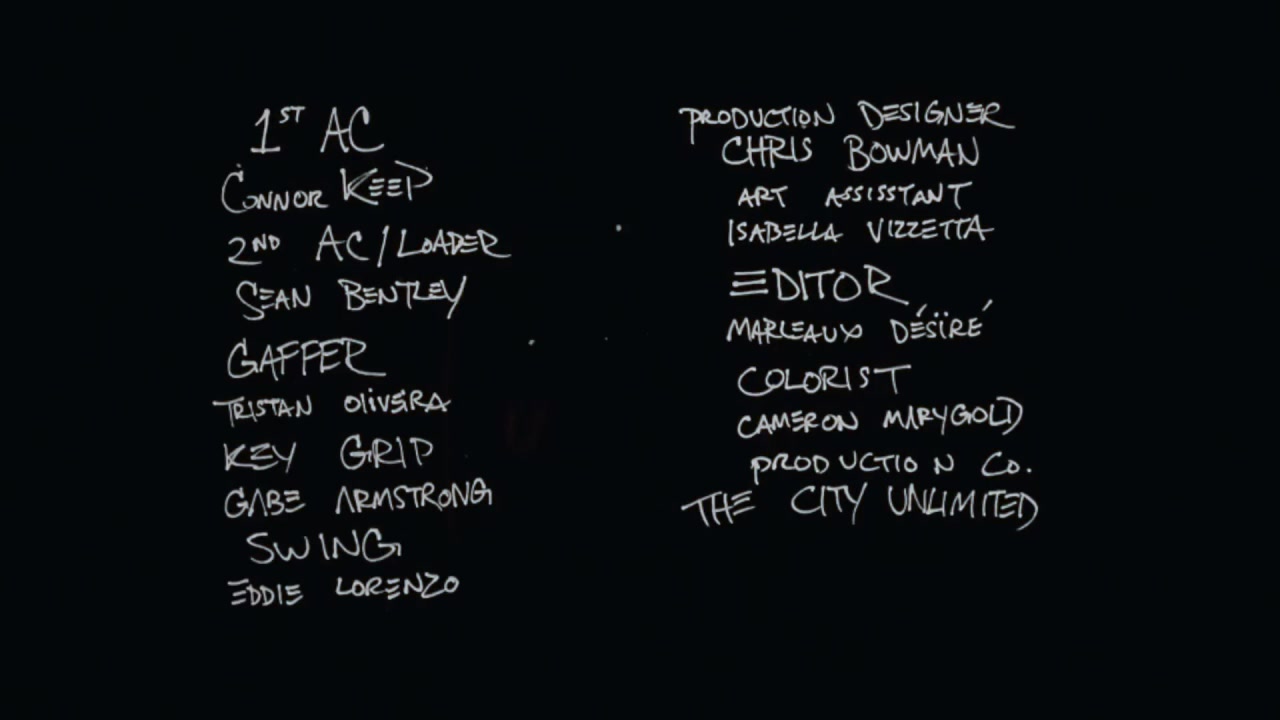 1ST AC
CONNOR KEEP
2ND AC/LOADER
SEAN BENTLEY
GAFFER
TRISTAN OLiVEiRA
KEY GRIP
GABE ARMSTRONG
SWING
EDDIE LORENZO
PRODUCTION DESIGNER
CHRIS BOWMAN
ART ASSISSTANT
ISABELLA VIZZETTA
EDITOR
MARLEAUX DÉSÏRÉ
COLORIST
CAMERON MARYGOLD
PRODUCTION CO.
THE CITY UNLIMITED